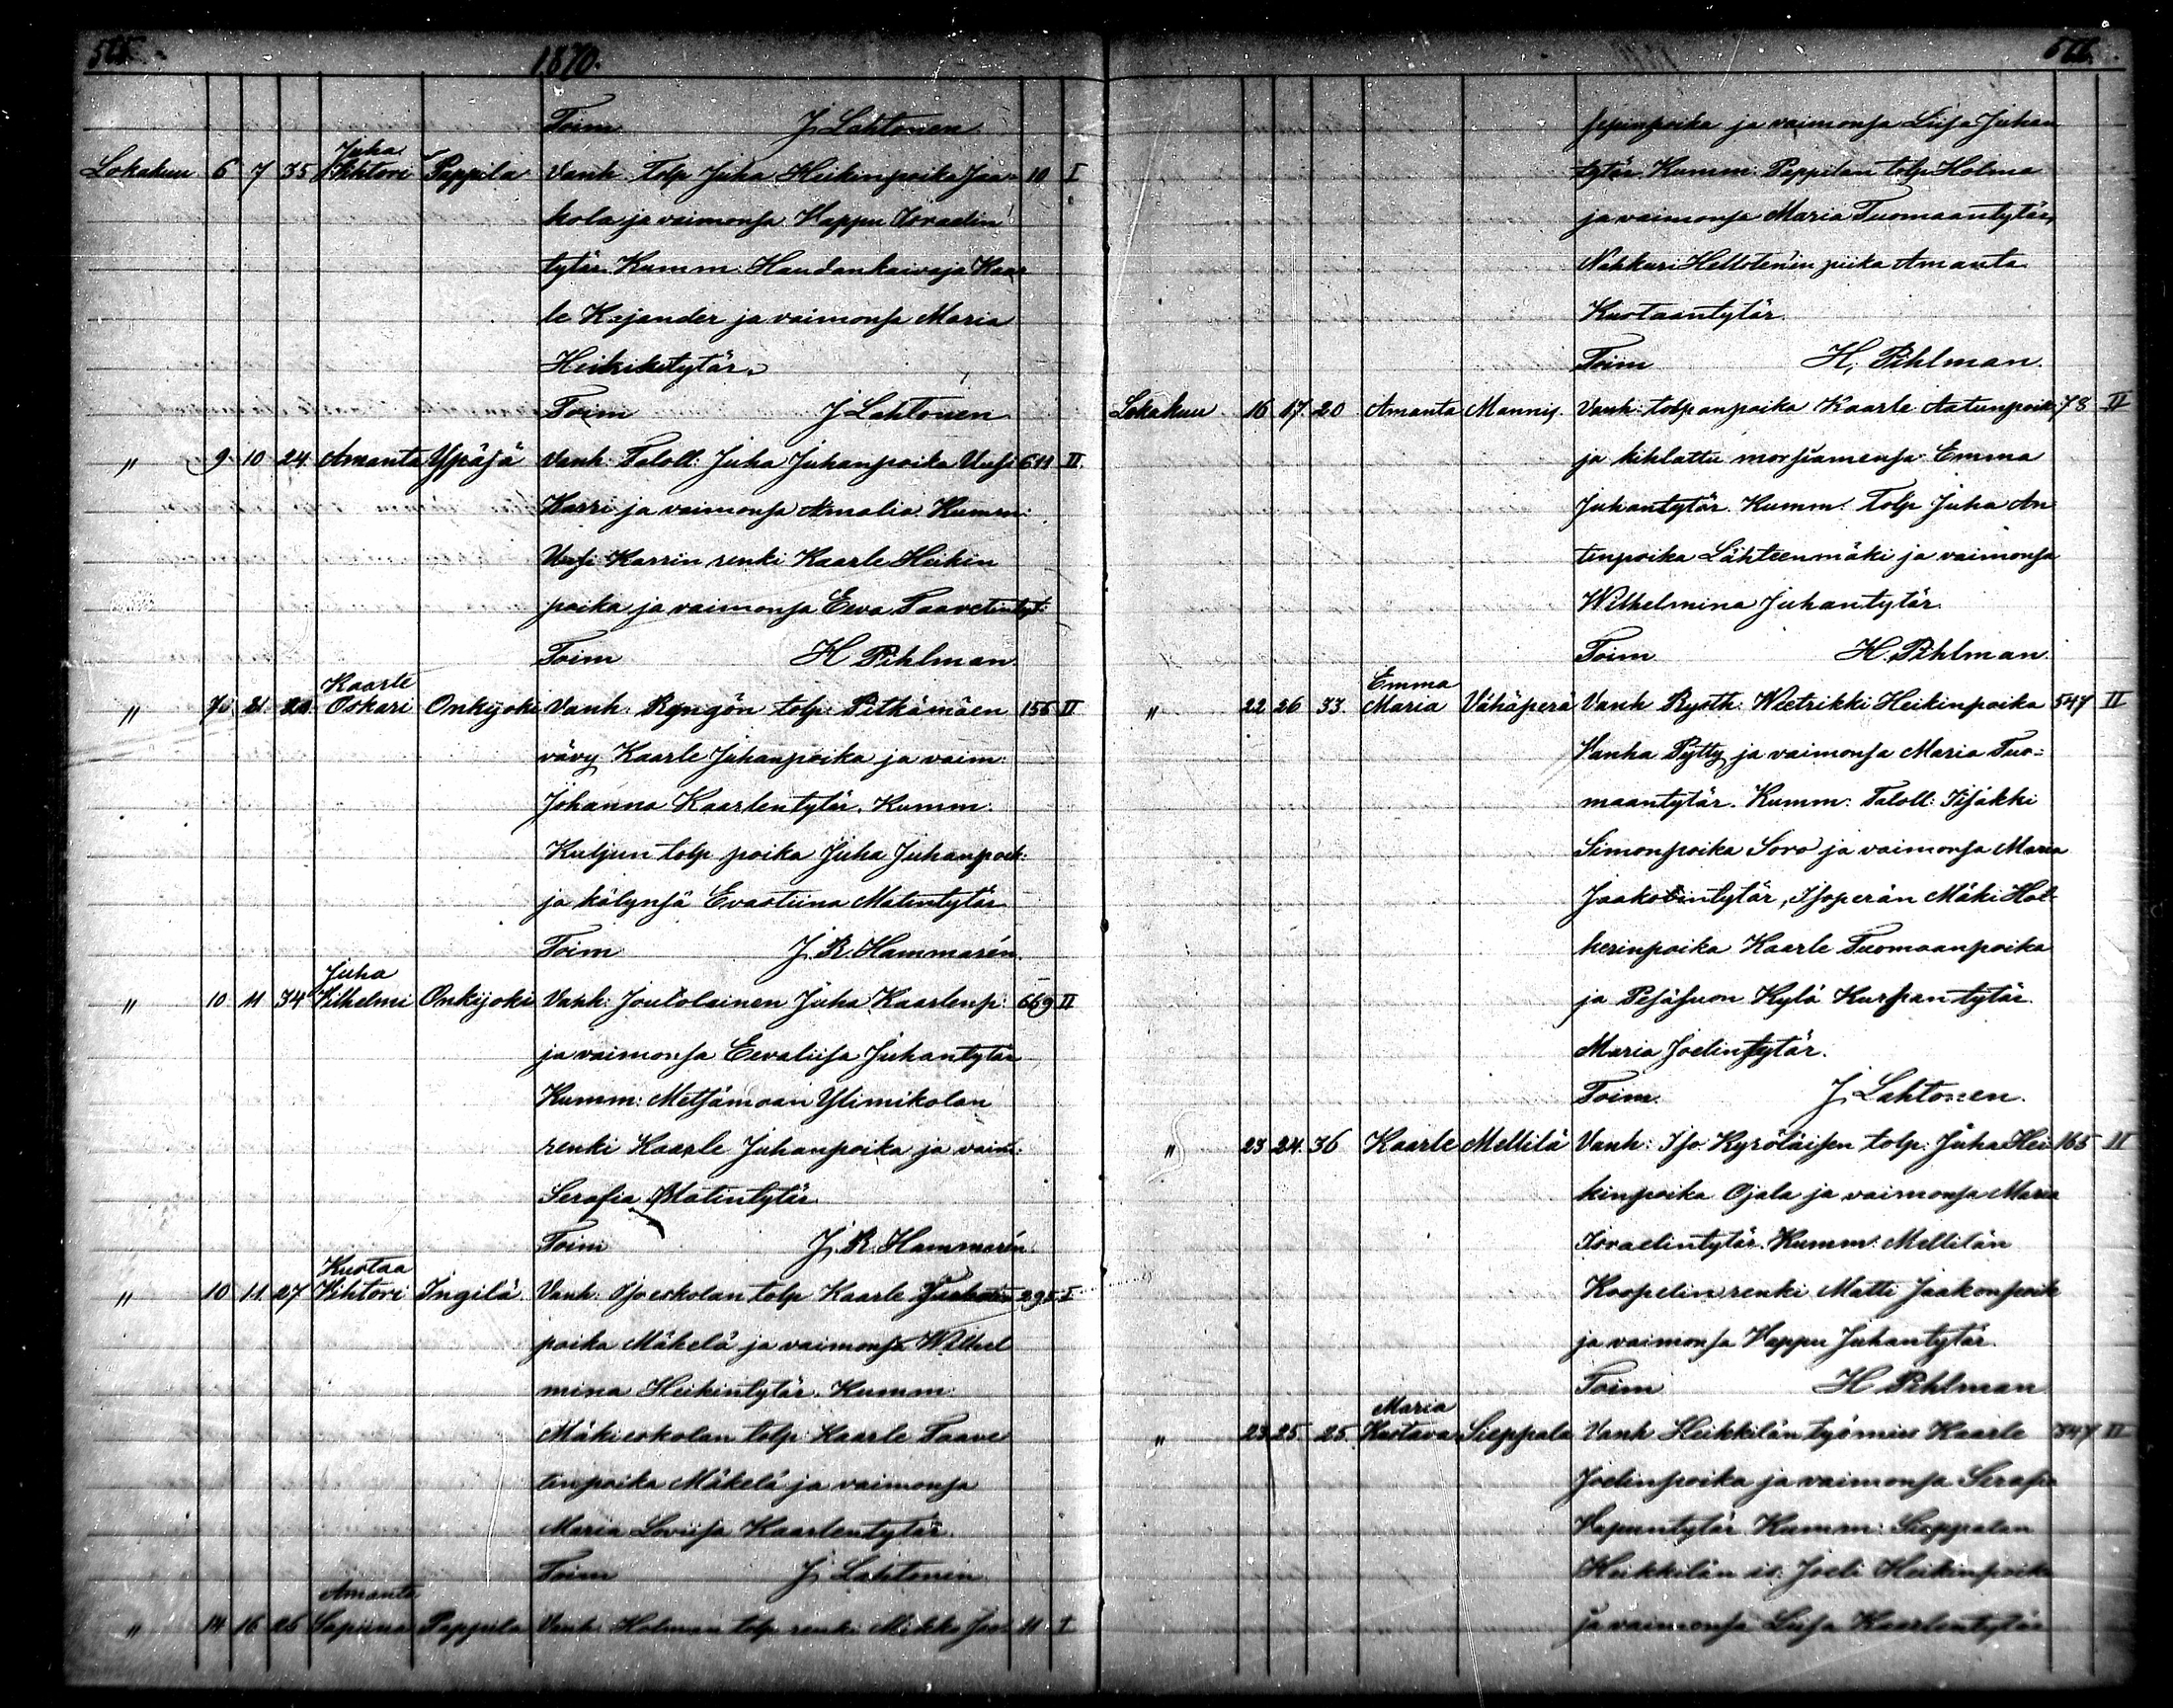 1870.
Toim J. Lahtonen
Juha
Lokakuu 6 7 35 Vihtori Pappila Vanh. Tolp. Juha Heikinpoika Jaa- 10 I
kola ja vaimonsa Vappu Israelin
tytär. Kumm: Haudankaivaja Kaar
le Kajander ja vaimonsa Maria
Heikintytär.
Toim J. Lahtonen
" 9 10 24 Amanta Ypäjä Vanh: Taloll: Juha Juhanpoika Uusi 611 II
Karri ja vaimonsa Amalia. Kumm:
Uusi Karrin renki Kaarle Heikin
poika ja vaimonsa Eeva Taavetintyt:
Toim H. Pihlman
Kaarle
" Oskari Onkijoki Vanh: Ryngön tolp: Pitkämäen 156 II
vävy Kaarle Juhanpoika ja vaim:
Johanna Kaarlentytär. Kumm:
Kuljun tolp poika Juha Juhanpoik:
ja kälynsä Evastiina Matintytär
Toim J. R. Hammarén.
Juha
" 10 11 34 Vilhelmi Onkijoki Vanh: Joutolainen Juha Kaarlenp: 669 II
ja vaimonsa Eevaliisa Juhantytär
Kumm: Metsämaan Ylimikolan
renki Kaarle Juhanpoika ja vaim:
Serafia Matintytär
Toim J. R. Hammarén.
Kustaa
" 10 11 27 Vihtori Ingilä Vanh: tolp Kaarle 295 I
poika Mäkelä ja vaimonsa Wilhel
mina Heikintytär. Kumm:
Mäkieskolan tolp: Kaarle Taave
tinpoika Mäkelä ja vaimonsa
Maria Loviisa Kaarlentytär.
Toim J. Lahtonen
Amanta
" 14 16 26 Sapiina Pappila Vanh: Holman tolp renki Mikko Joo 11 I
seppinpoika ja vaimonsa Liisa Juhan
tytär. Kumm: Pappilan tolp Holma
ja vaimonsa Maria Tuomaantytär,
Nahkuri Hellstenin piika Amanta
Kustaantytär.
Toim H. Pihlman.
Lokakuu 16 17 20 Amanta Mannis. Vanh: tolp anpoika Kaarle Aatunpoik 78 II
ja kihlattu morsiamensa Emma
Juhantytär. Kumm: Tolp Juha An
tinpoika Lähteenmäki ja vaimonsa
Wilhelmina Juhantytär.
Toim H. Pihlman.
Emma
" 22 26 33 Maria Vähäperä Vanh Rusth: Wietrikki Heikinpoika 547 II
Vanha Pytty ja vaimonsa Maria Tuo-
maantytär. Kumm: Taloll: Iisakki
Simonpoika Soro ja vaimonsa Maria
Jaakobintytär, Isoperän Mäki Hol-
kerinpoika Kaarle Tuomaanpoika
ja Pesäsuon Kylä Kurssantytär
Maria Joelintytär.
Toim. J. Lahtonen.
" 23 24 36 Kaarle Mellilä Vanh: Iso Kyröläisen tolp: Juha Hei 165 II
kinpoika Ojala ja vaimonsa Maria
Israelintytär. Kumm: Mellilän
Koopelin renki Matti Jaakonpoik
ja vaimonsa Vappu Juhantytär.
Toim H. Pihlman
Maria
" 23 25 25 Kustava Sieppala Vanh Heikkilän työmies Kaarle 347 II
Joelinpoika ja vaimonsa Serafia
Vapuntytär Kumm: Sieppalan
Heikkilän is. Joeli Heikinpoika
ja vaimonsa Liisa Kaarlentytär